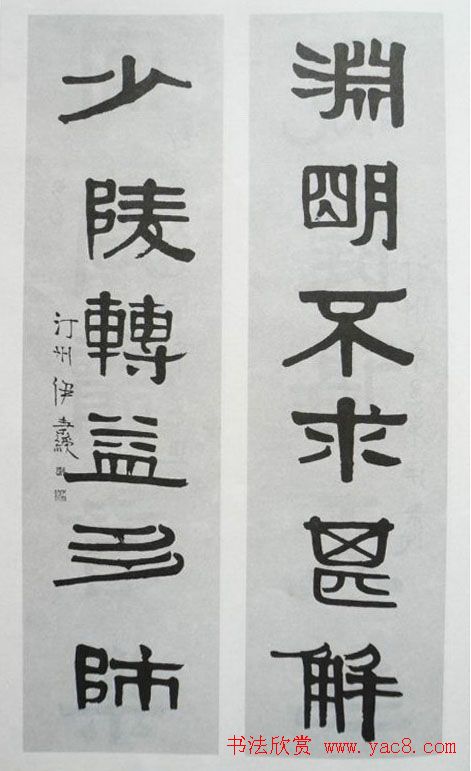 淵朙不求甚解
少陵轉益多師
汀州伊秉綬
书法欣赏 www.yac8.com